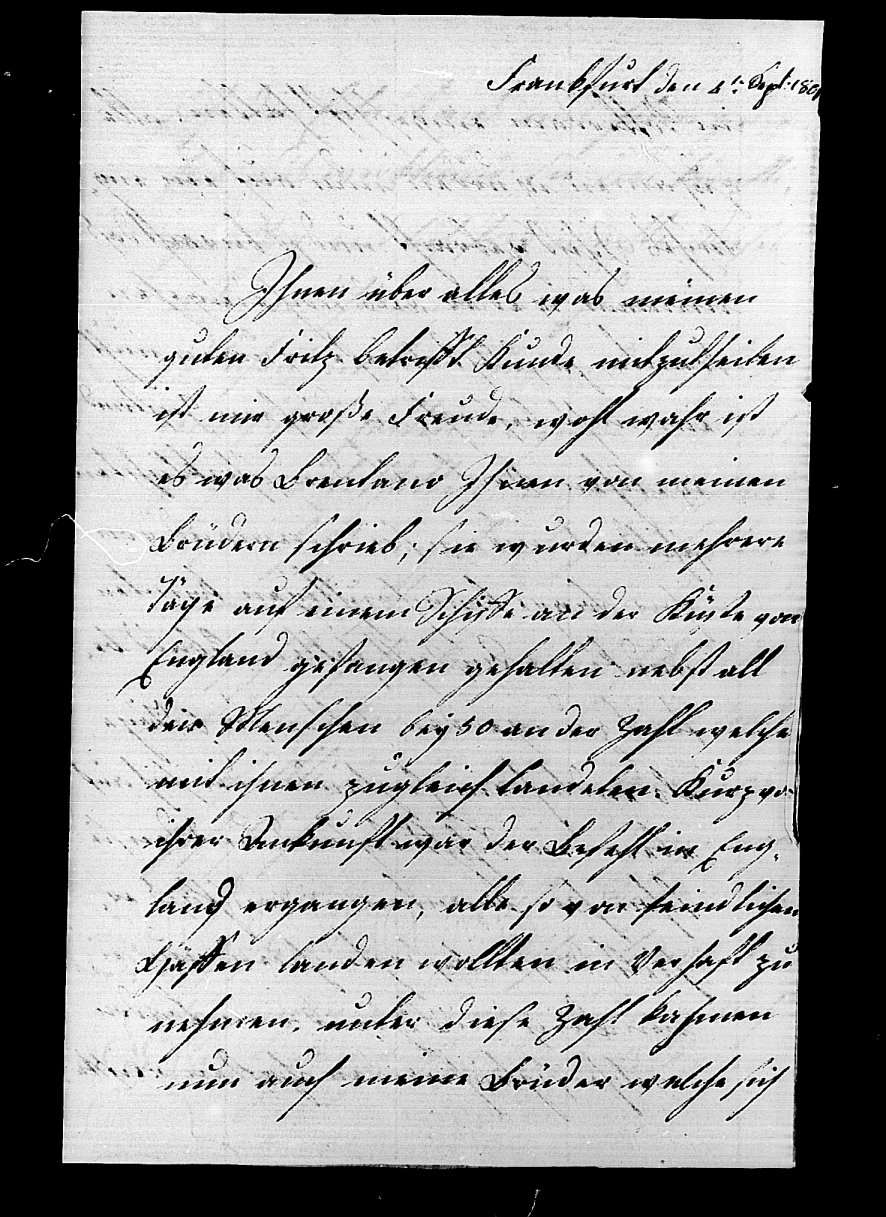 Frankfurt den 4t. Sept: 180
Ihnen über alles was meinen
guten Fritz betrifft Kunde mitzutheilen
ist mir große Freude, wohl wahr ist
es was Brentano Ihnen von meinen
Brüdern schrieb; sie wurden mehrere
Täge auf einem Schiffe an der Küste von
England gefangen gehalten nebst all
den Menschen bey 50 an der Zahl welche
mit ihnen zugleich landeten. Kurz vor
ihrer Ankunft war der Befehl in Eng-
land ergangen, alle so von feindlichen
Häffen landen wollten in Verhaft zu
nehmen, unter diese Zahl kahmen
nun auch meine Brüder welche sich